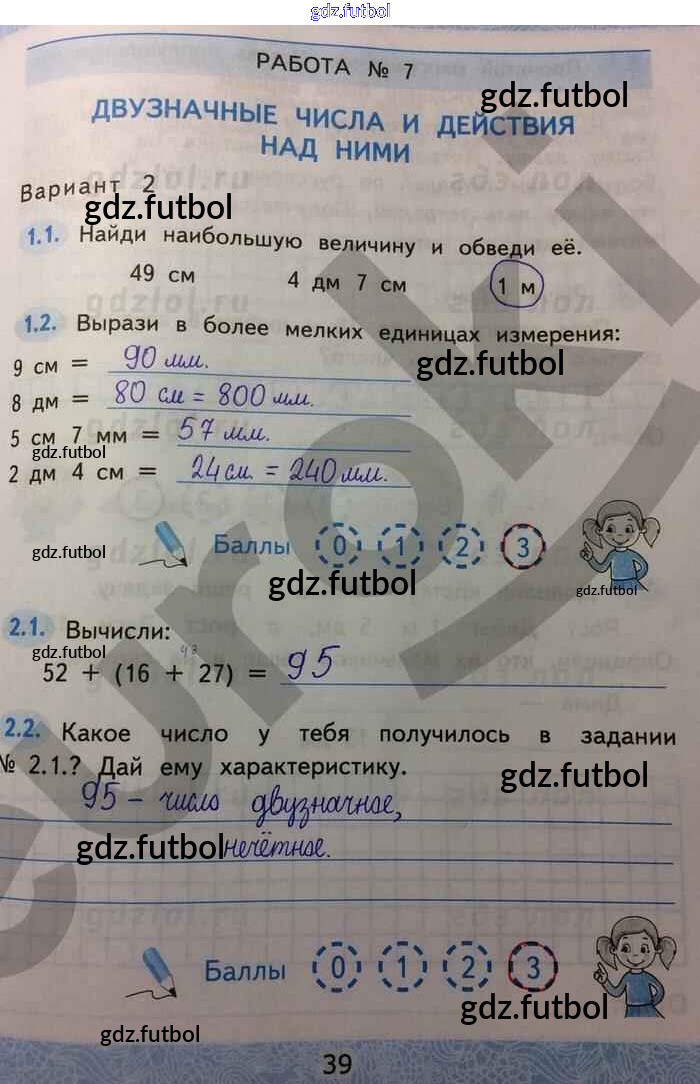 gdz.futbol
РАБОТА № 7
gdz.futbol
ДВУЗНАЧНЫЕ ЧИСЛА И ДЕЙСТВИЯ
НАД НИМИ
Вариант 2
gdz.futbol
1.1. Найди наибольшую величину и обведи её.
49 см 4 дм 7 см 1 м
1.2. Вырази в более мелких единицах измерения:
gdz.futbol
9 см = 90 мм.
8 дм = 80 см = 800 мм.
5 см 7 мм = 57 мм.
gdz.futbol
2 дм 4 см = 24 см. = 240 мм.
Баллы 0 1 2 3
gdz.futbol
gdz.futbol
gdz.futbol
2.1. Вычисли:
gdz.futbol
gdz.futbol
43
52 + (16 + 27) = 95
2.2. Какое число у тебя получилось в задании
№ 2.1.? Дай ему характеристику.
gdz.futbol
95 - число двузначное,
gdz.futbol
нечётное.
Баллы 0 1 2 3
gdz.futbol
gdz.futbol
39